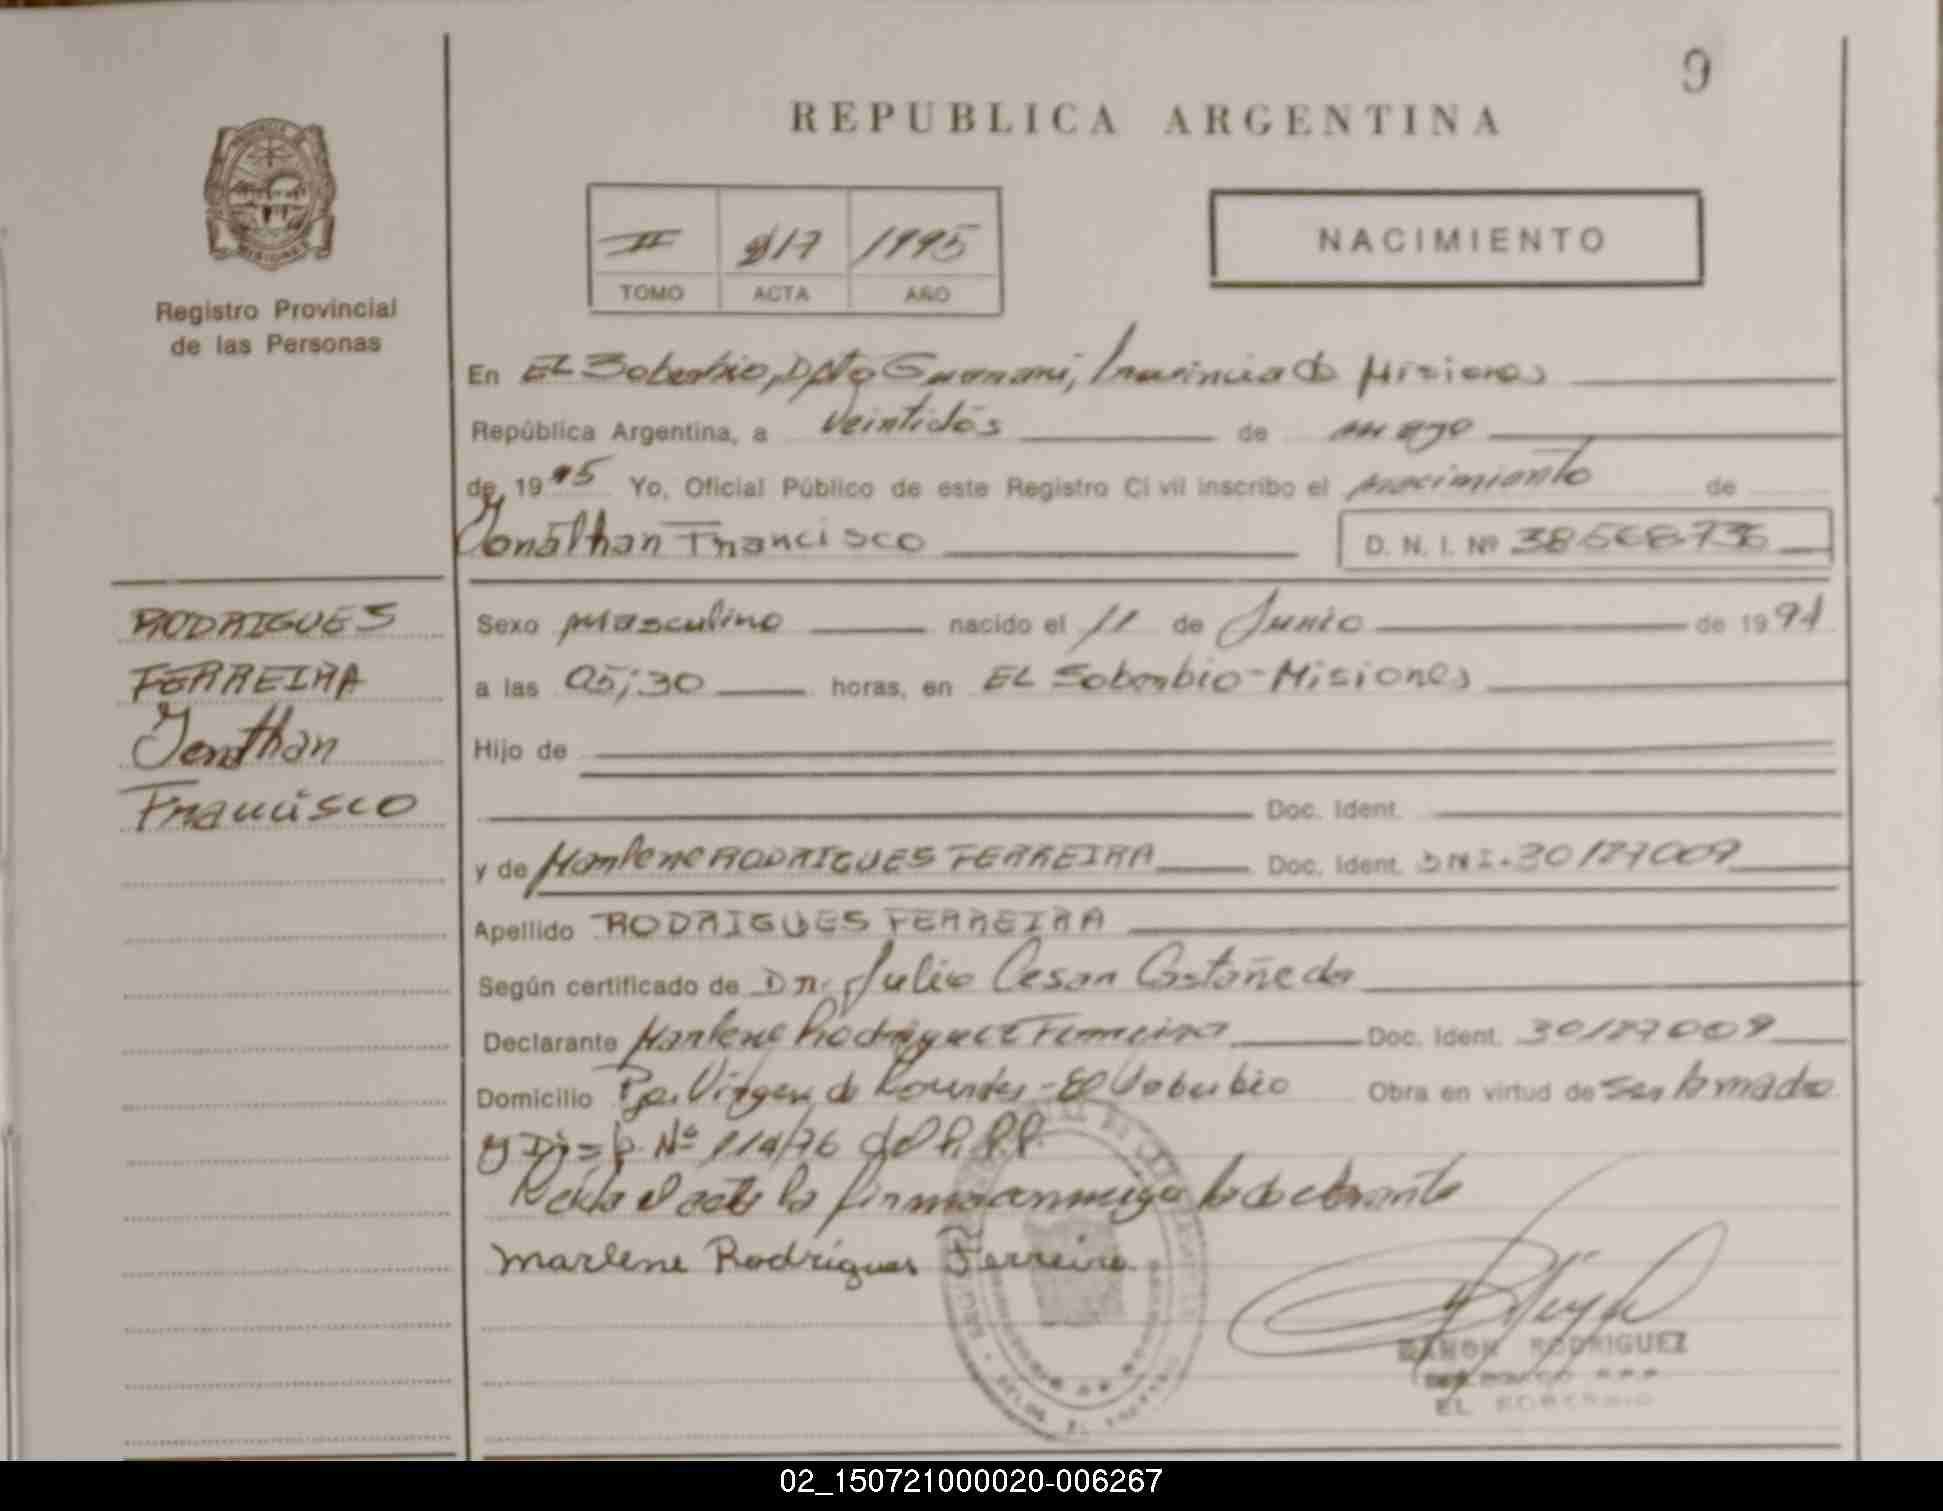 9
REPUBLICA ARGENTINA
II 217 1995
TOMO ACTA AÑO
NACIMIENTO
MISIONES
Registro Provincial
de las Personas
En EL Soberbio, Dpto Guarani, Provincia de Misiones
República Argentina, a veintidós de mayo
de 1995 Yo, Oficial Público de este Registro Civil inscribo el nacimiento de
Jonathan Francisco D. N. I. Nº
RODRIGUES
FERREIRA
Jonathan
Francisco
Sexo masculino nacido el 11 de Junio de 1994
a las 05;30 horas, en EL Soberbio-Misiones
Hijo de
Doc. Ident.
y de Marlene RODRIGUES FERREIRA Doc. Ident. DNI. 30127009
Apellido RODRIGUES FERREIRA
Según certificado de Dr. Julio Cesar Castañeda
Declarante Marlene Rodrigues Ferreira Doc. Ident. 30127009
Domicilio Virgen de Lourdes - El Soberbio Obra en virtud de ser la madre
y Disp. Nº 114/76 del R.P.P.
Leida el acta la firma conmigo la declarante
Marlene Rodrigues Ferreira
RAMON RODRIGUEZ
EL SOBERBIO
02_150721000020-006267